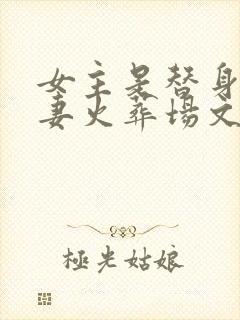 女主是替身
妻火葬場文
極光姑娘